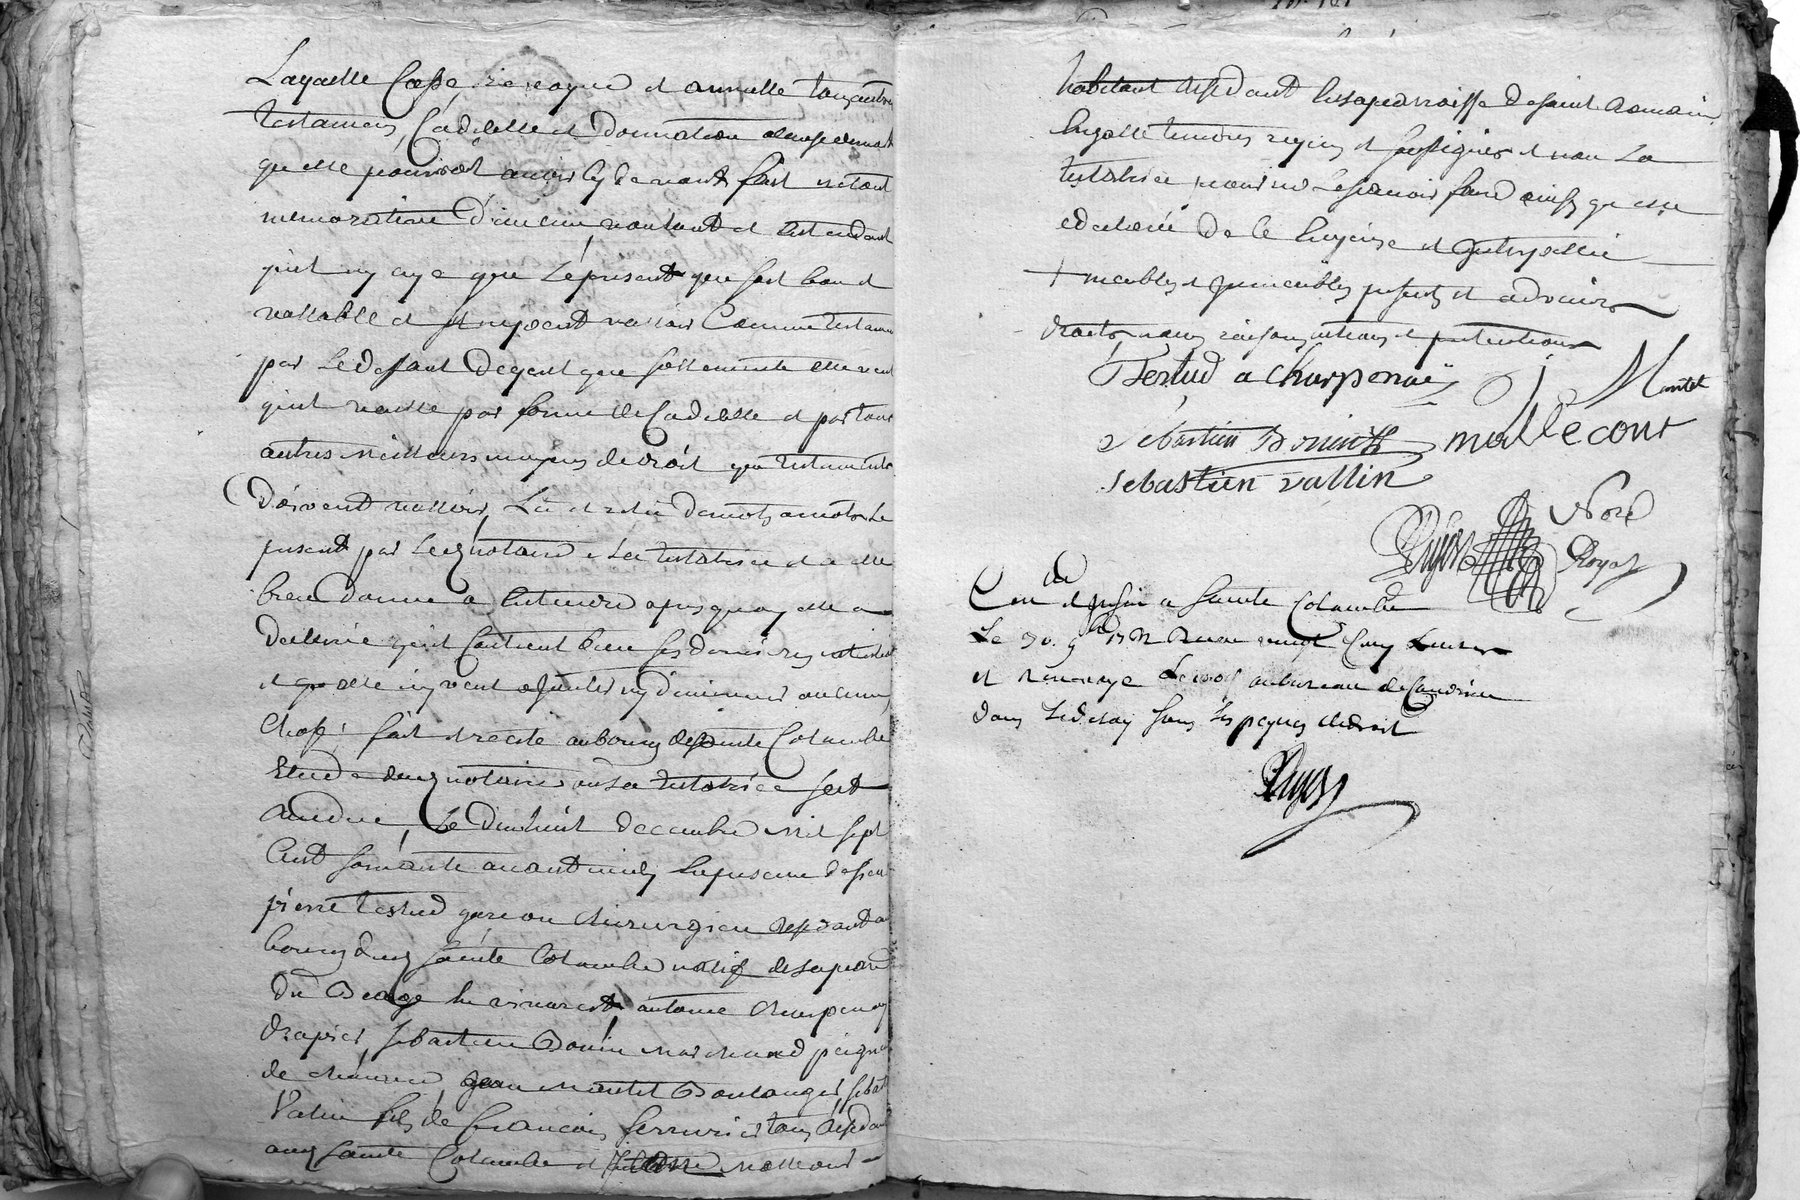 Laquelle Casse revoque et annulle tous autres
testamens, Codicille et Donnation
quelle pourroit avoir cy devant fait netant
memorative d'aucun, voulant et entendant
quil ny aye que le present que soit bon et
vallable et puisse valloir Comme testament
par le deffaut dequel que sollemnité elle veut
quil vaille par forme de Codicille et par tous
autres meilleurs moyens de droit que testaments
doivent valloir, Lû et relû de mots a mots le
present par le dit notaire a La testatrice et a elle
bien donné a entendre apres quoy elle a
declaré quil contient bien ses dernieres intentions
et quelle ny veut ajouter ny diminuer aucune
chose; fait et recité au bourg de sainte Colombe
Etude dudit notaire ou La testatrice sest
rendue, Le dixhuit decembre mil sept
Cent soixante avant midy En presence de sieur
pierre testud garçon chirurgien residant au
bourg dudit sainte Colombe natif de la parroisse
Du antoine Charpenay
drapier, sebastien Bonin marchand peigneur
de chanvre, jean mantel Boulanger, sebastien
Valin fils de françois serrurier tous residant
audit sainte Colombe et mallecourt
habitant residant en la parroisse de saint Romain
En galle temoins requis et soussignés et non La
testatrice pour ne le sçavoir faire ainsy que elle
a declaré de ce Enquise et interpellée
+ meubles et immeubles presents et advenir
droits, noms raisons actions et pretentions
Testud a Charpenay Mantel
Sebastien Bonin mallecourt
sebastien vallin
Nore
Royal
Con et insin a sainte Colombe
Le 30. Reçu vingt cinq Livres
et renvoye au bureau de Condrieu
dans le delay sous les peynes de droit